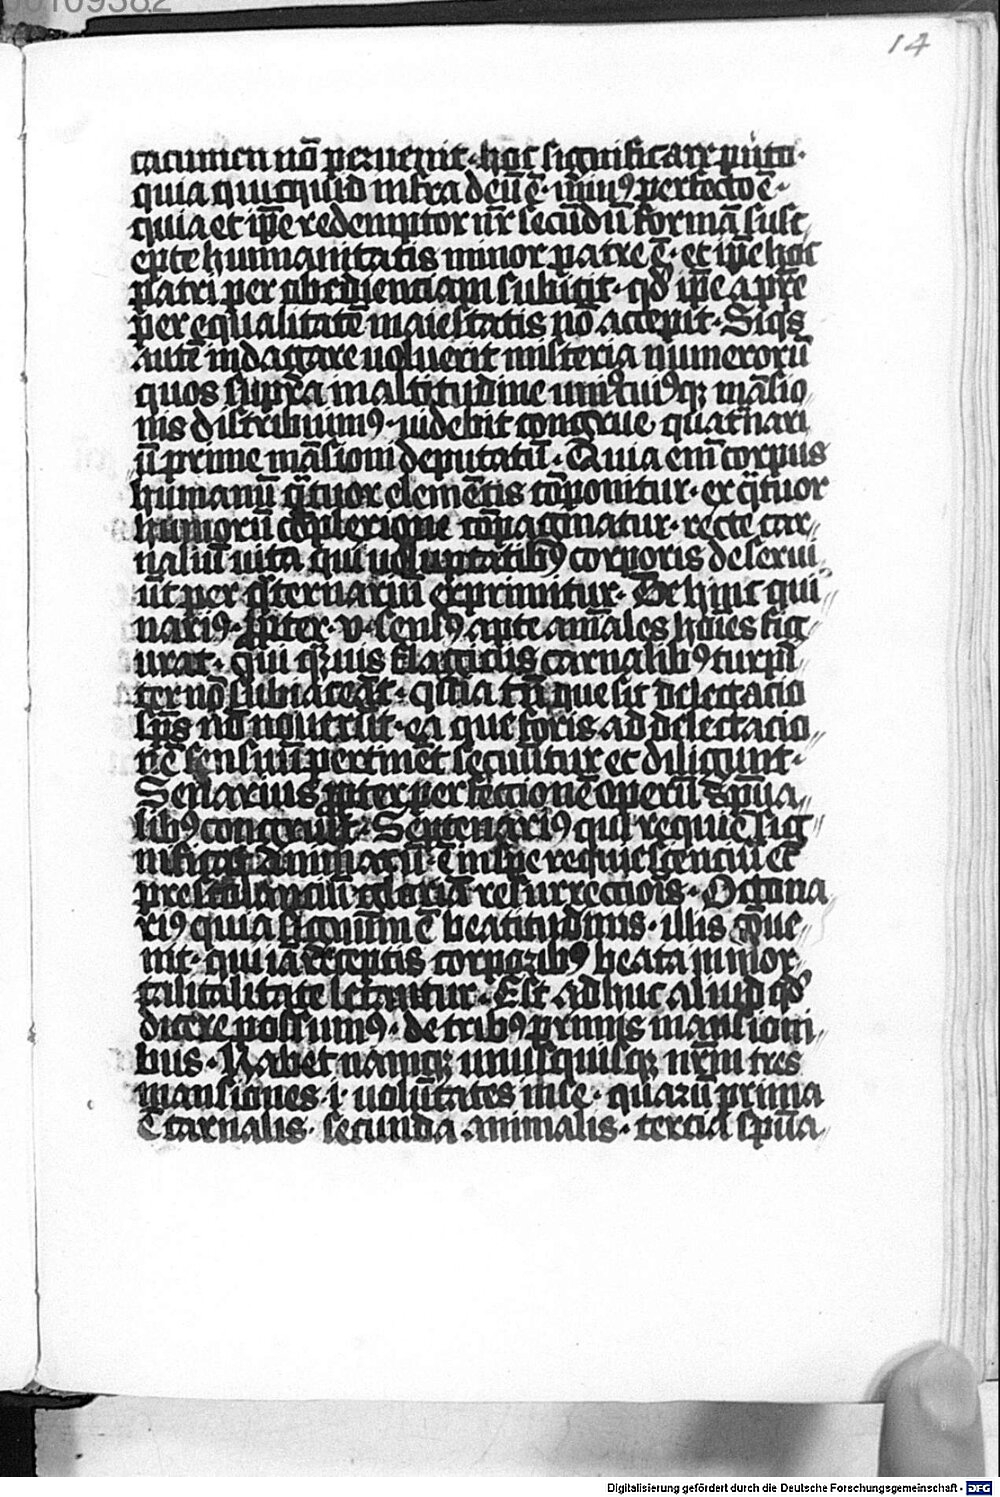 00109382
14
cacumen nō peruenit· hoc significare puto·
quia quicquid infra deū ē· minꝰ perfecto ē·
quia et ip̄e redemptor nr̄ secūdū formā susc
epte humanitatis minor patre ē· et ip̄e hoc
patri per obedientiam subicit· qd̕ ip̄e a pr̄e
per equalitatē maiestatis nō accepit· Siqͥs
autē indagare uoluerit misteria numerorū
quos supra in altitudine uniꝰcuiꝰqꝫ māsio
nis distribuimꝰ· uidebit congrue quaternari
ū prime māsioni deputatū· Quia enī corpus
humanū qͣtuor elemētis cōponitur· ex qͣtuor
humorū cōplexione cōpaginatur· recte car
naliū uita qui uoluptatibꝰ corporis deserui
ūt per qͣternariū exprimitur· Dehinc qui
nariꝰ ꝓpter ·v· sensꝰ apte aīales hōies fig
urat· qui qͣuis flagiciis carnalibꝰ turpi
ter nō subiaceāt· quia tn̄ que sit delectatio
sp̄s nō nouerūt· ea que foris ad delectatio
nē sensuū pertinēt secūtur et diligunt·
Senarius ꝓpter perfectionē operū sp̄ua
libꝰ congruit· Septenariꝰ qui requiē sig
nificat animarū· ē in spe requiescenciū et
prestolanciū gloriā resurrectiois· Octona
riꝰ quia signum ē beatitudinis· illis cōue
nit· qui iā receptis corporibꝰ beata inmor
talitalitate letantur· Est adhuc aliud qd̕
dicere possumꝰ· de tribꝰ primis mansioni
bus· Habet namqꝫ unusquisqꝫ nr̄m tres
mansiones ·i· uolūtates in se· quarū prima
ē carnalis· secunda ·animalis· tercia sp̄ua
Digitalisierung gefördert durch die Deutsche Forschungsgemeinschaft - DFG